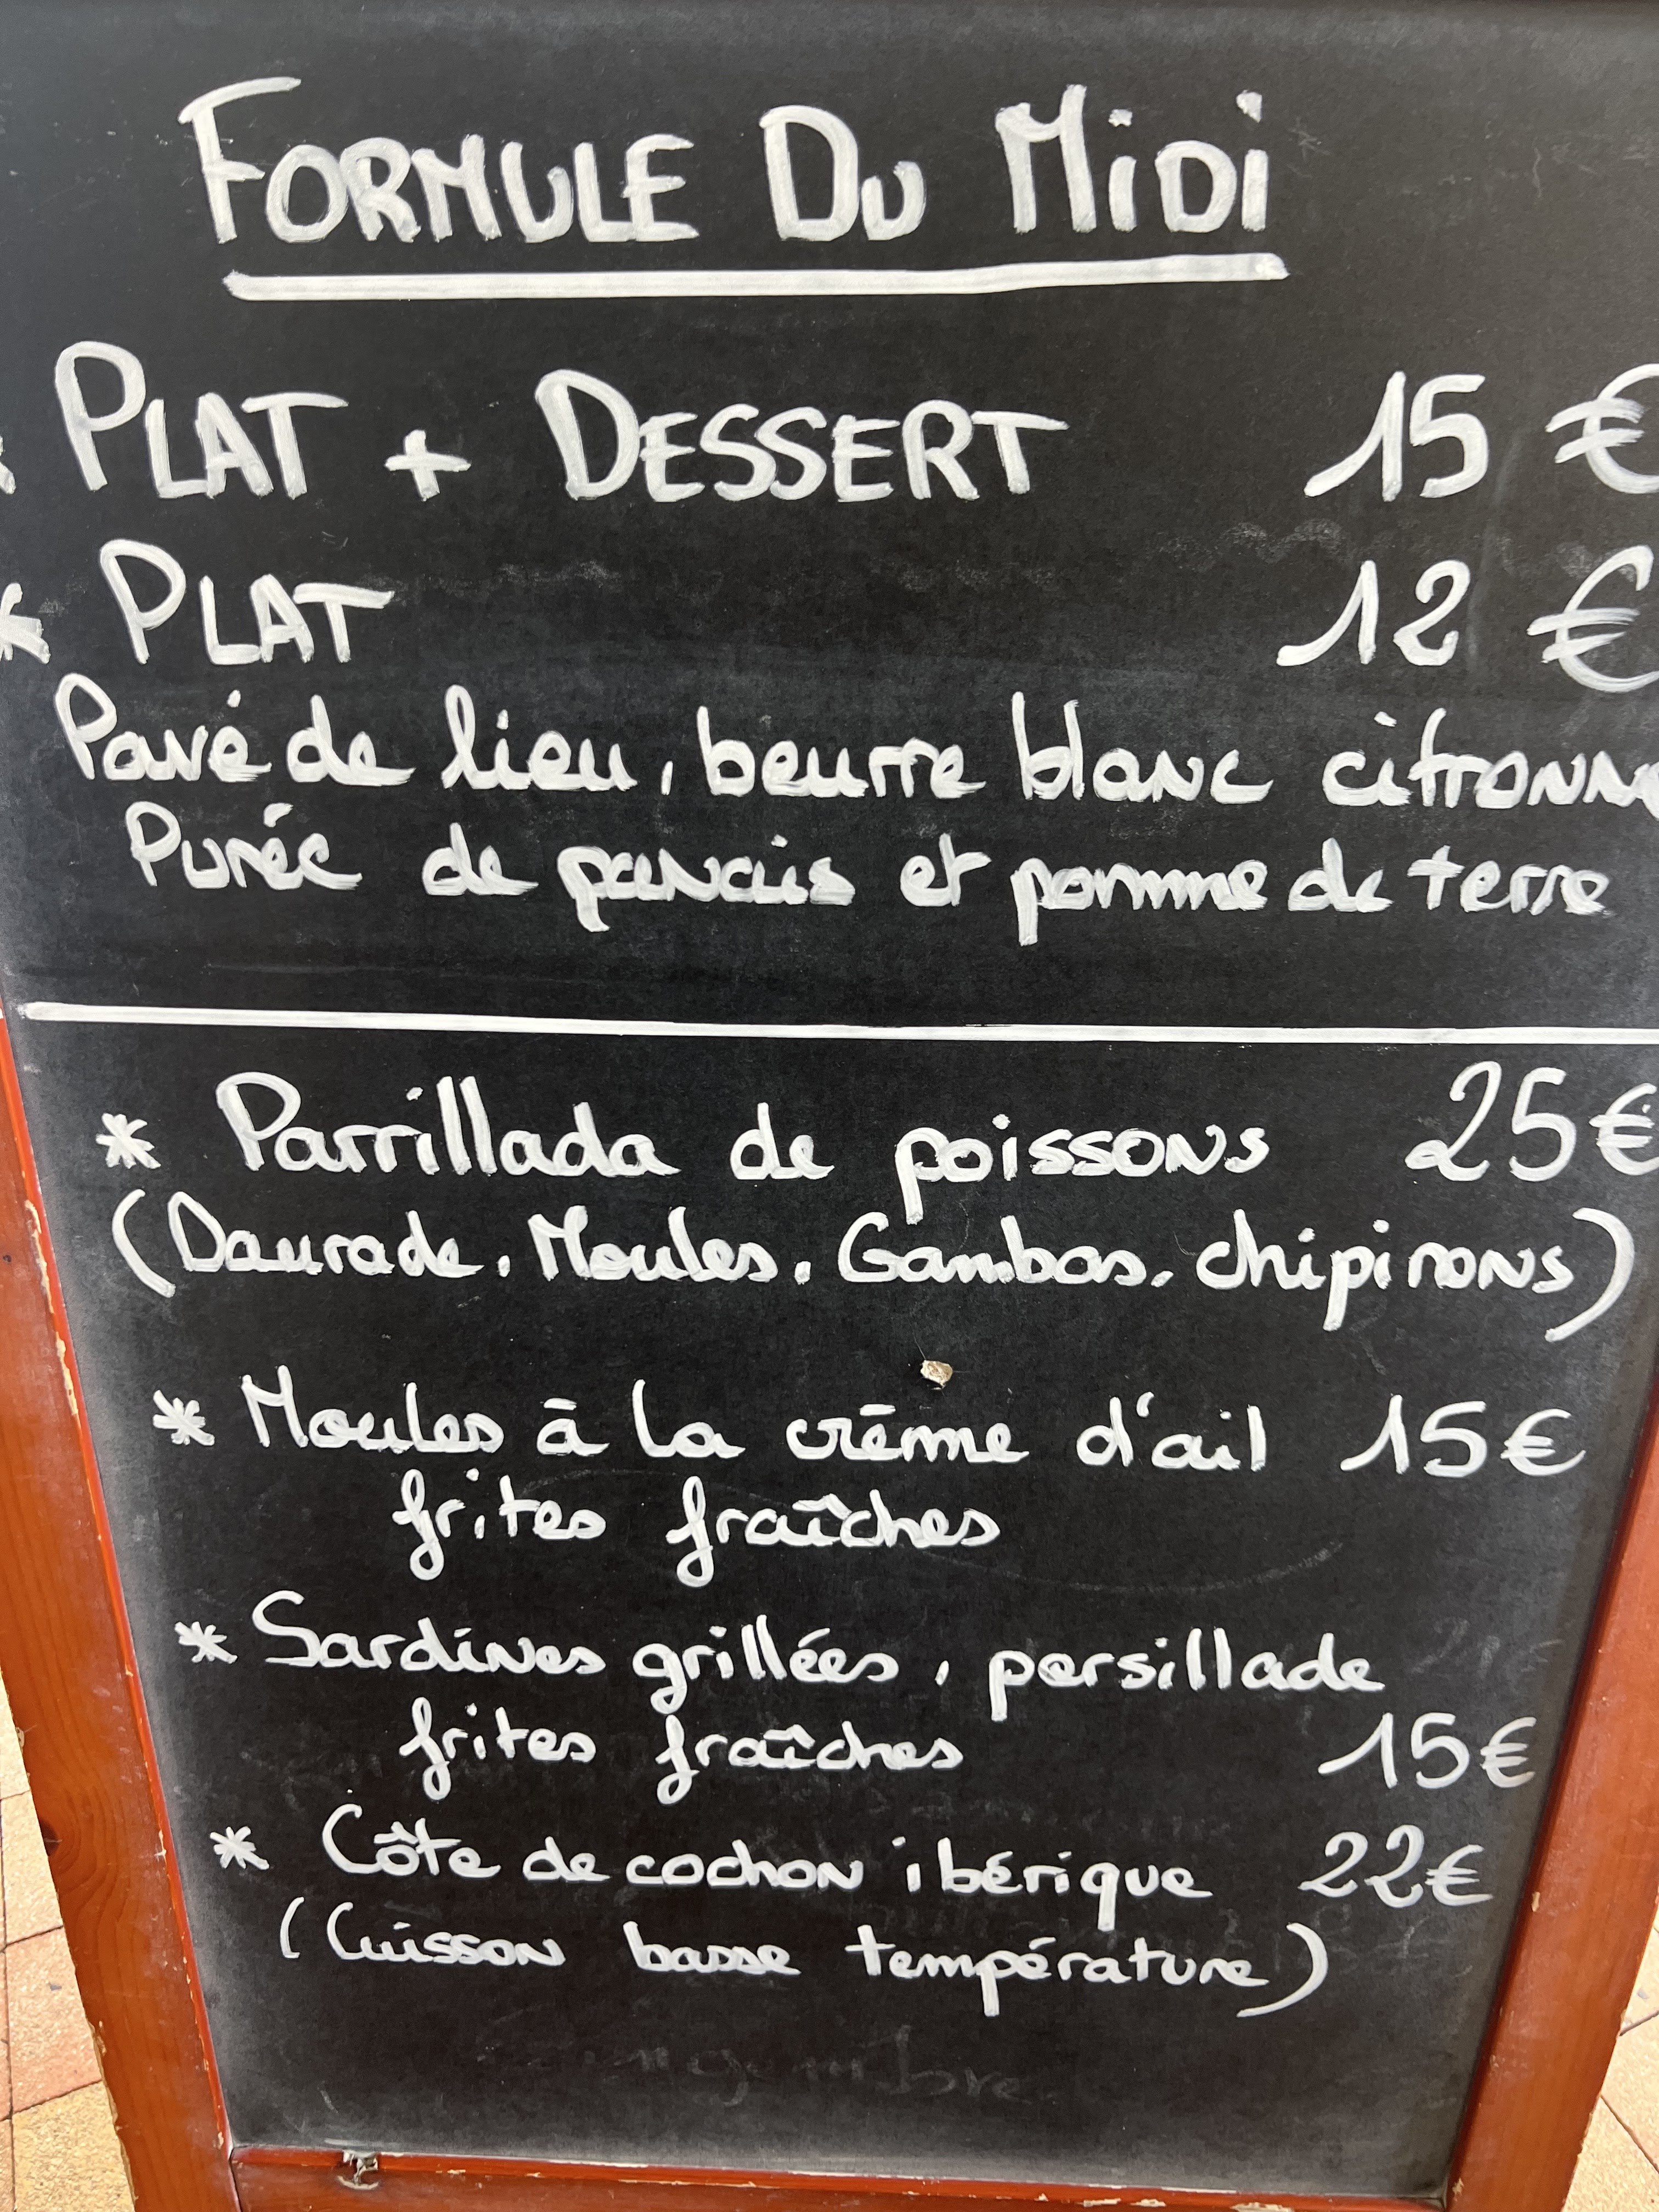 FORMULE DU MiDi
PLAT + DESSERT 15 €
* PLAT 12 €
Pavé de lieu, beurre blanc citronné
Purée de panais et pomme de terre
* Parrillada de poissons 25€
(Daurade, Moules, Gambas, chipirons)
* Moules à la crème d'ail 15€
frites fraîches
* Sardines grillées, persillade
frites fraîches 15€
* Côte de cochon ibérique 22€
(Cuisson basse température)